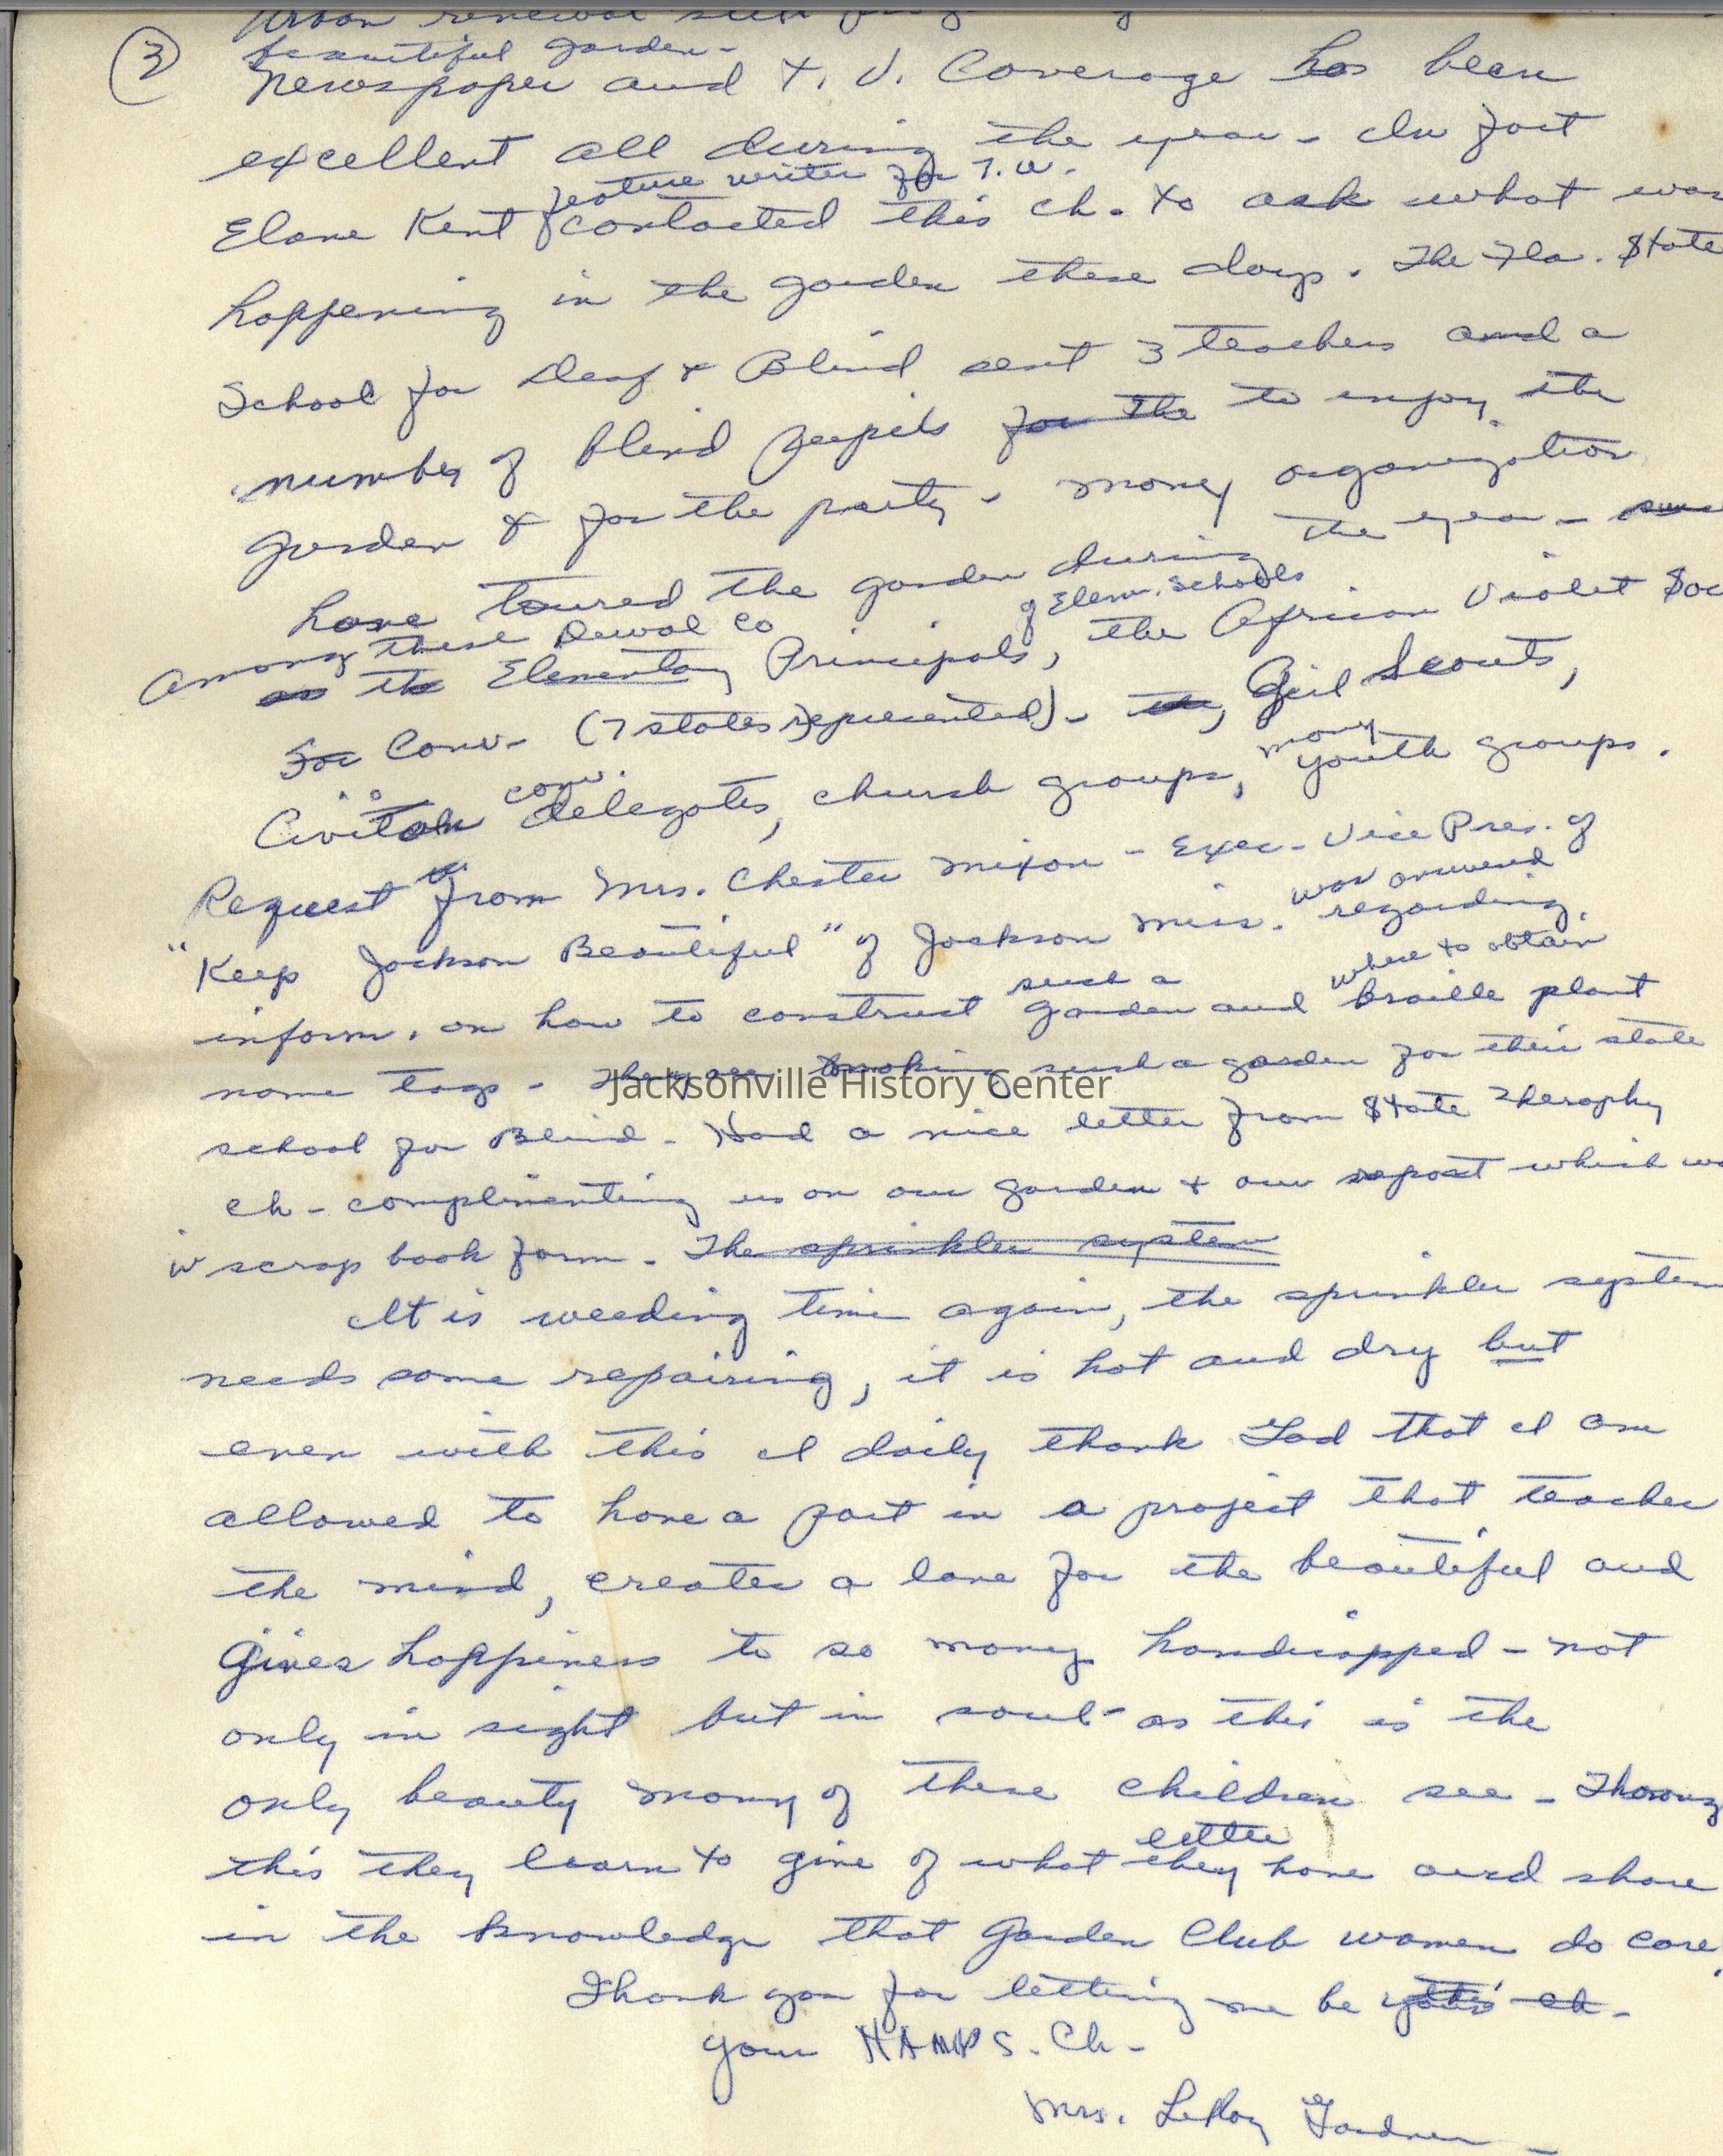 ③ Urban renewal
beautiful garden -
Newspaper and T. V. Coverage has been
excellent all during the year - In fact
feature writer for T.U.
Elane Kent contacted this ch. to ask what was
happening in the garden these days. The Fla. State
School for Deaf & Blind sent 3 teachers and a
number of blind pupils for the to enjoy the
garden & for the party - many organization
have toured the garden during the year -
Among these Duval Co of Elem. Schools
as the Elementary Principals, the African Violet Soc
Soc Conv. (7 states represented) - the, Girl Scouts,
Civitan conv. delegates, church groups, many youth groups.
Request from Mrs. Chester Mixon - Exec. Vice Pres. of
was answered
"Keep Jackson Beautiful" of Jackson Miss. regarding
such a where to obtain
inform. on how to construct garden and Braille plant
name tags - They are making such a garden for their state
school for Blind - Had a nice letter from State Theraphy
ch - complimenting us on our garden & our report which wa
in scrap book form - The sprinkler system
It is weeding time again, the sprinkler system
needs some repairing, it is hot and dry but
even with this I daily thank God that I am
allowed to have a part in a project that teaches
the mind, creates a love for the beautiful and
gives happiness to so many handicapped - not
only in sight but in soul - as this is the
only beauty many of these children see -
little
this they learn to give of what they have and share
in the knowledge that Garden Club women do care.
Thank you for letting me be your ch -
your HAMPS. Ch -
Mrs. LeRoy Gardner -
Jacksonville History Center